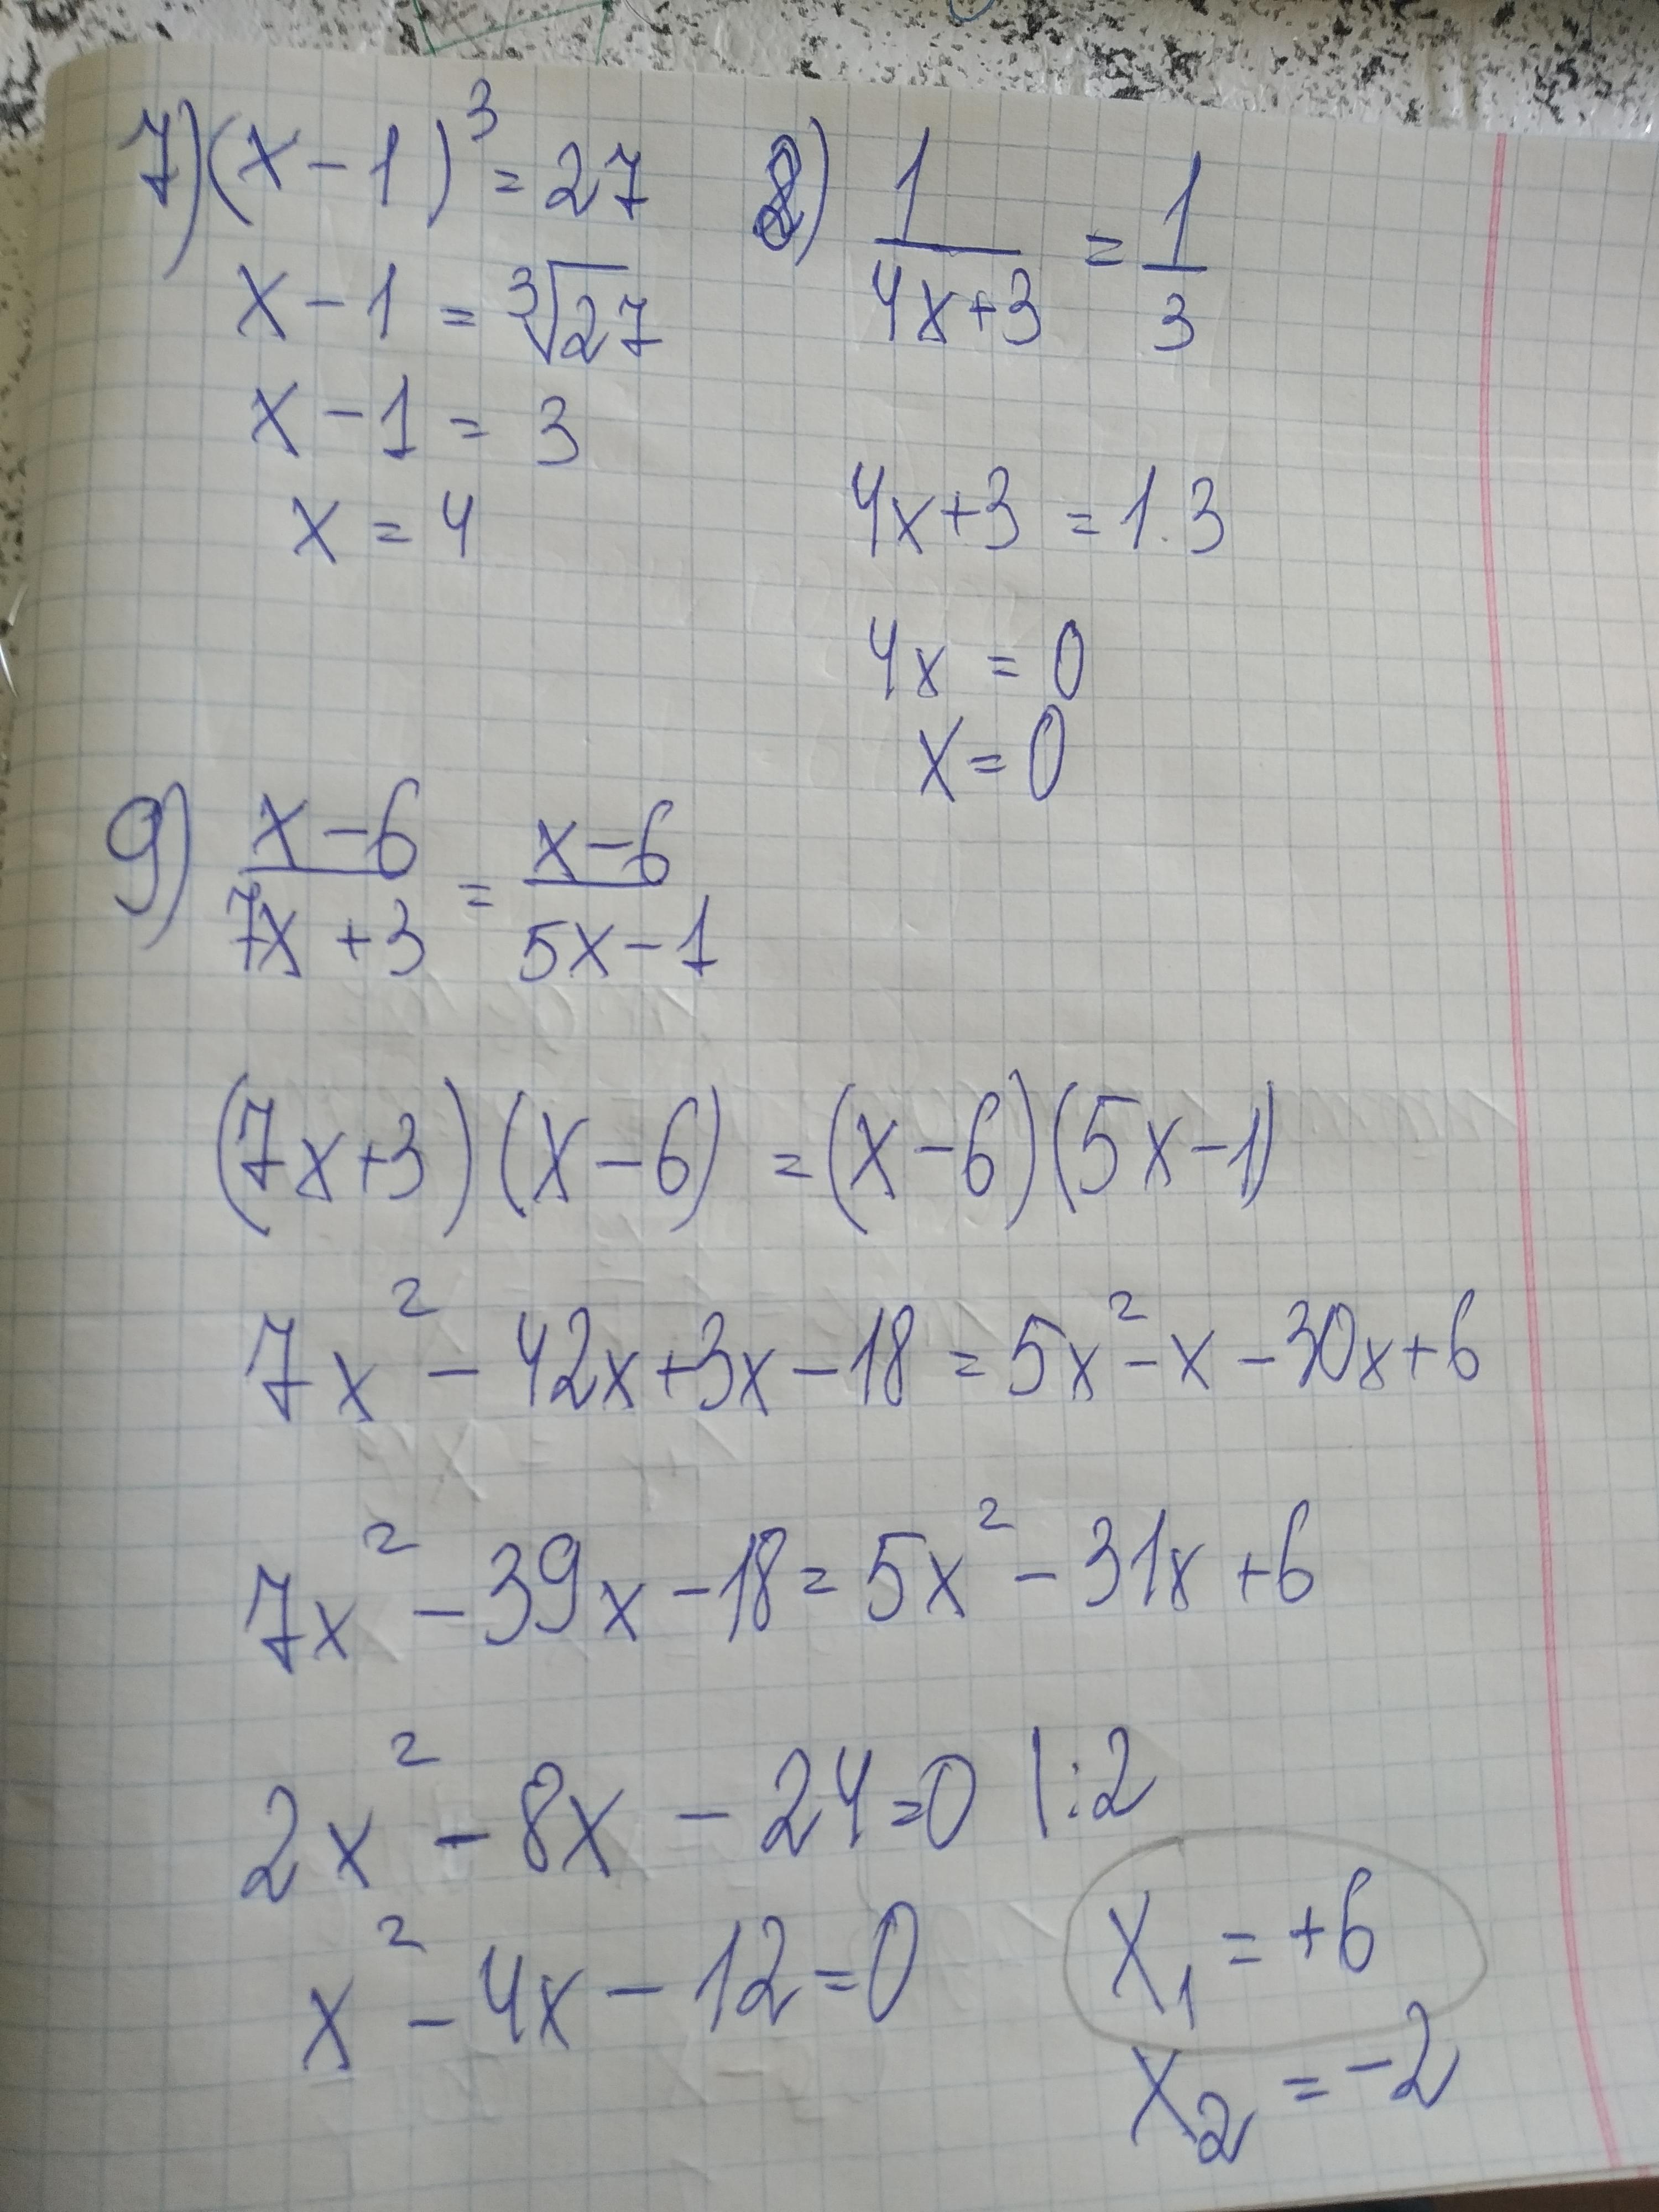 7) (x-1)³ = 27
x-1 = ∛27
x-1 = 3
x = 4
8) 1/(4x+3) = 1/3
4x+3 = 1·3
4x = 0
x = 0
9) (x-6)/(7x+3) = (x-6)/(5x-1)
(7x+3)(x-6) = (x-6)(5x-1)
7x² - 42x + 3x - 18 = 5x² - x - 30x + 6
7x² - 39x - 18 = 5x² - 31x + 6
2x² - 8x - 24 = 0 |:2
x² - 4x - 12 = 0
x₁ = +6
x₂ = -2